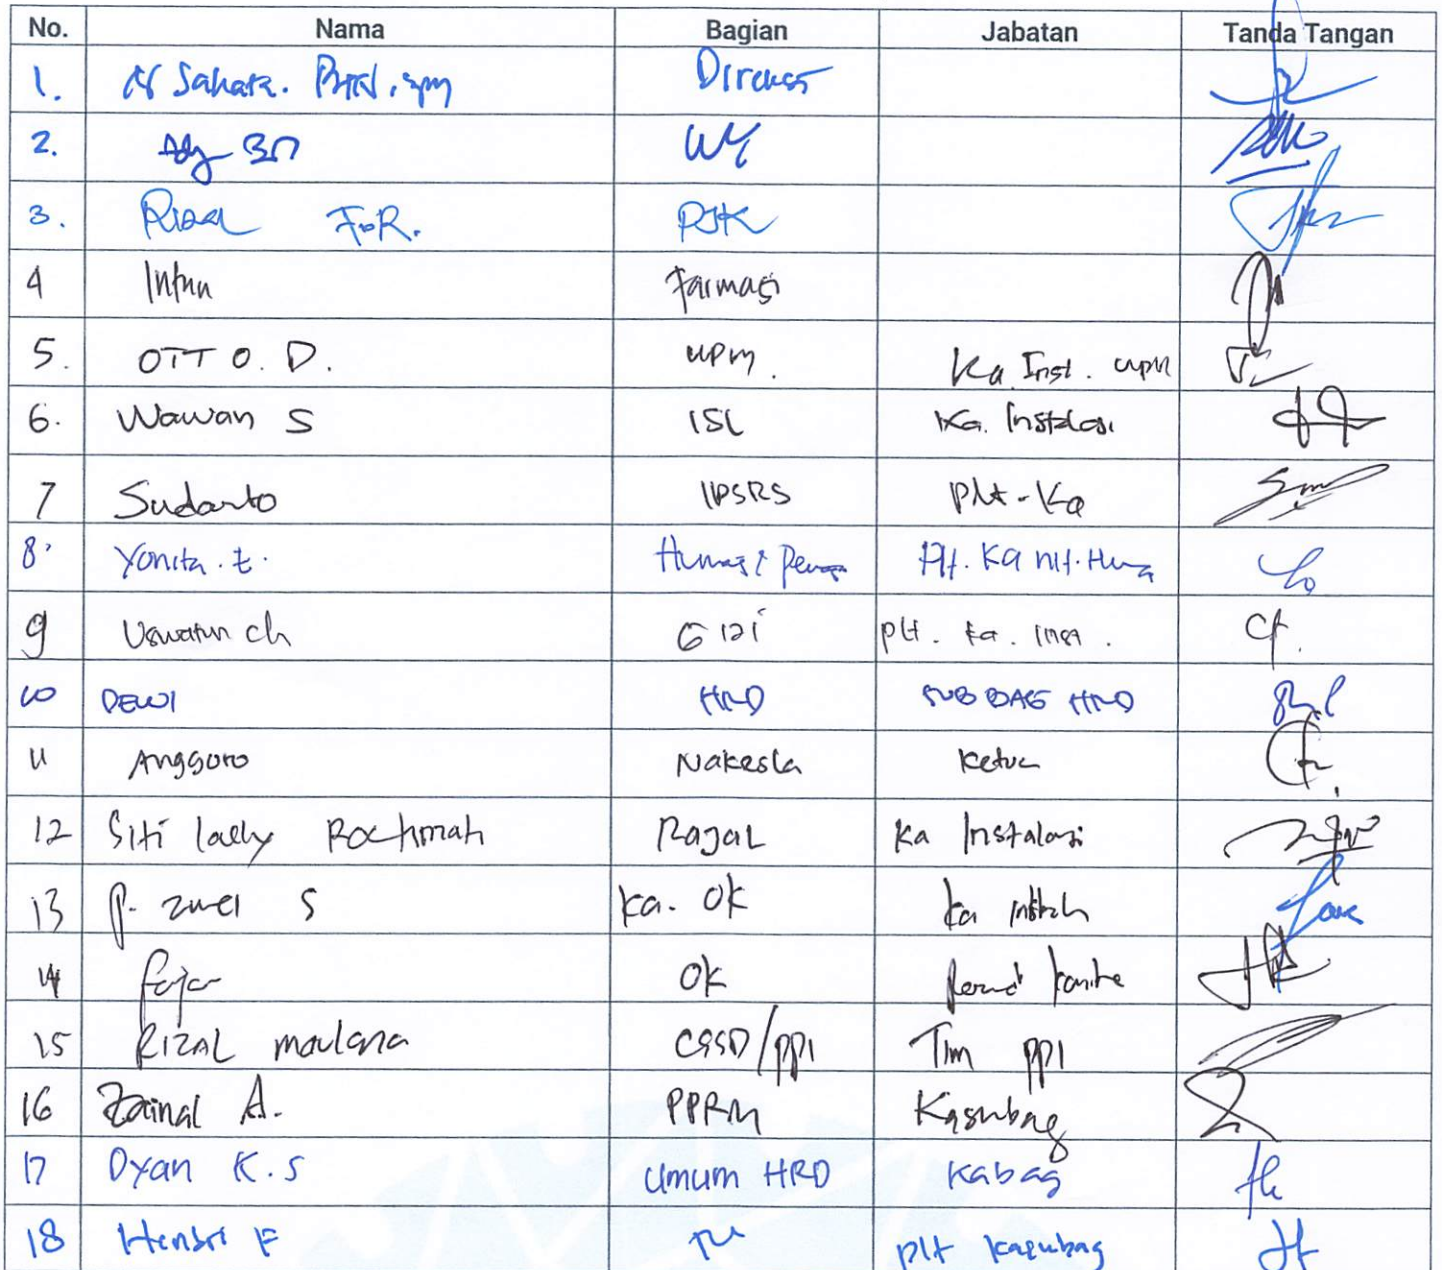 No. Nama Bagian Jabatan Tanda Tangan
1. Sahara. Direksi
2.
3. Rizal F.R. PJK
4 Intan Farmasi
5. OTTO. D. UPM. Ka. Inst. UPM
6. Wawan S ISL Ka. Instalasi
7 Sudarto IPSRS Plt-Ka
8. Yonita. E. Humas & Plt. Ka
9 Uswatun Ch Gizi Plt. Ka.
10 DEWI HRD SUBBAG HRD
11 Anggoro Nakesla Ketua
12 Siti Laely Rochmah RajaL Ka Instalasi
13 P. S Ka. OK Ka
14 Fajar OK
15 RIZAL Maulana CSSD/PPI Tim PPI
16 Zainal A. PPRM Kasubag
17 Dyan K.S Umum HRD Kabag
18 Hendri F Plt Kasubag